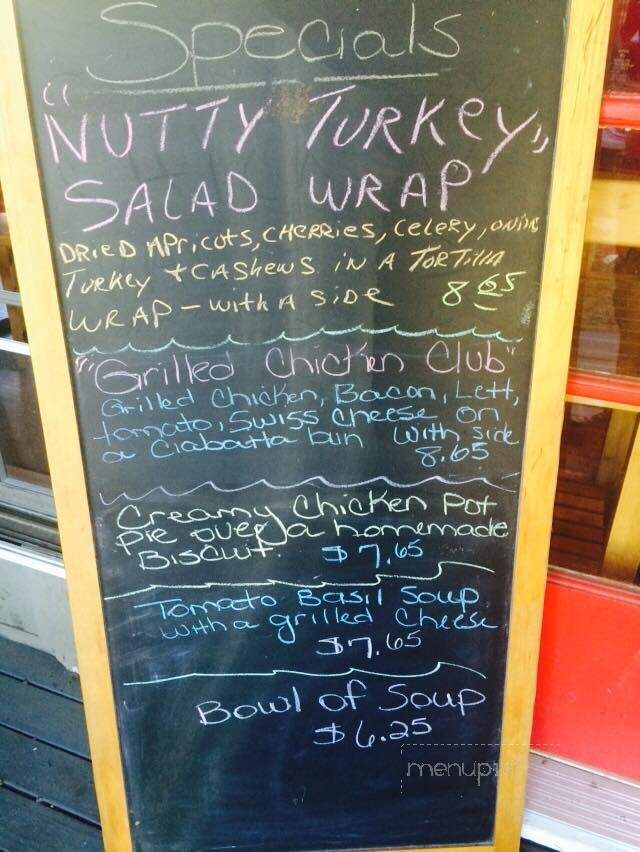 Specials
"NUTTY TURKEY"
SALAD WRAP
DRIED APRICOTS, CHERRIES, CELERY, ONION
TURKEY + CASHEWS IN A TORTILLA
WRAP - WITH A SIDE 8 65
"Grilled Chicken Club"
Grilled Chicken, Bacon, Lett,
tomato, Swiss Cheese on
a Ciabatta bun with side
8.65
Creamy Chicken Pot
pie over a homemade
Biscuit. $7.65
Tomato Basil Soup
with a grilled Cheese
$7.65
Bowl of Soup
$6.25